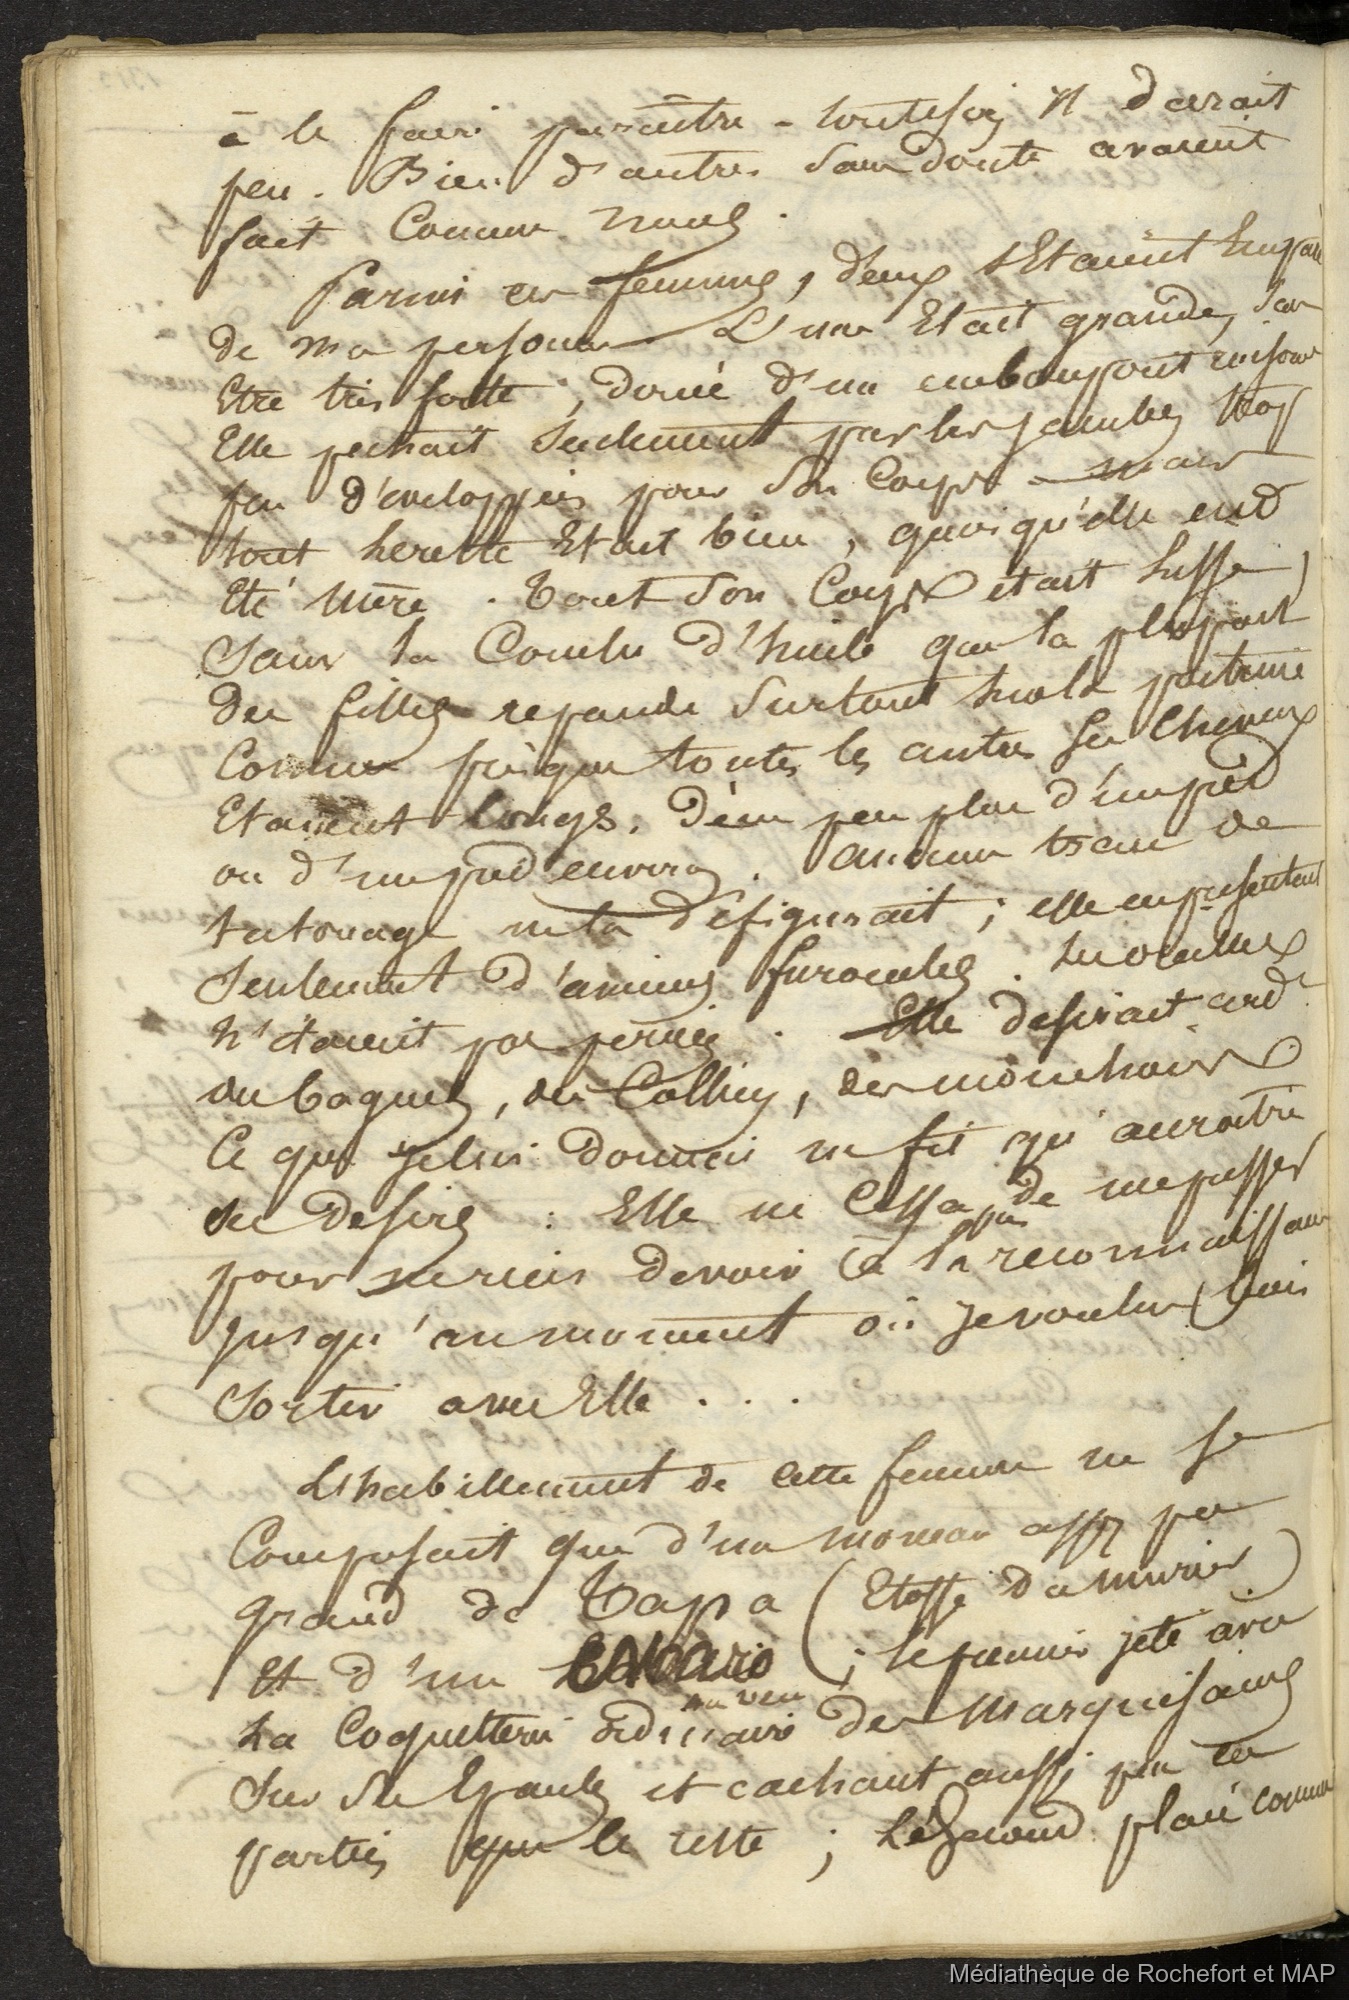 à le faire paraître - toutefois il durait
peu. Bien d'autres sans doute avaient
fait comme nous.
Parmi ces femmes, deux s'Etaient
de ma personne L'une Etait grande, sans
Etre très forte, douée d'un embonpoint
Elle pechait seulement par les jambes trop
peu d'eveloppées pour son Corps - mais
tout le reste Etait bien, quoiqu'elle eut
Eté mère. Tout son Corps était lisse,
Sans la Couche d'huile que la plupart
des filles repande surtout sur la poitrine
Comme presque toutes les autres ses cheveux
Etaient longs, d'un peu plus d'un pied
ou d'un pied environ. Aucune trace de
tatouage ne la défigurait; elle en presentant
Seulement d'anciens furoncles. Ses oreilles
n'étaient pas percées. Elle desirait
des bagues, des Colliers, des mouchoirs
Ce que je lui donnai ne fit qu'accroitre
ses desirs : Elle ne Cessa pas de
pour merien devoir à la reconnaissance
jusqu'au moment où je voulus bien
Sortir avec Elle . . .
L'habillement de cette femme ne se
Composait que d'un morceau assez peu
grand de Tapa (Etoffe du murier)
Et d'un ; le premier jeté avec
La Coquetterie ordinaire des Marquisaines
Sur ses Epaules et cachant aussi peu ces
parties que le reste ; le Second placé comme
Médiathèque de Rochefort et MAP